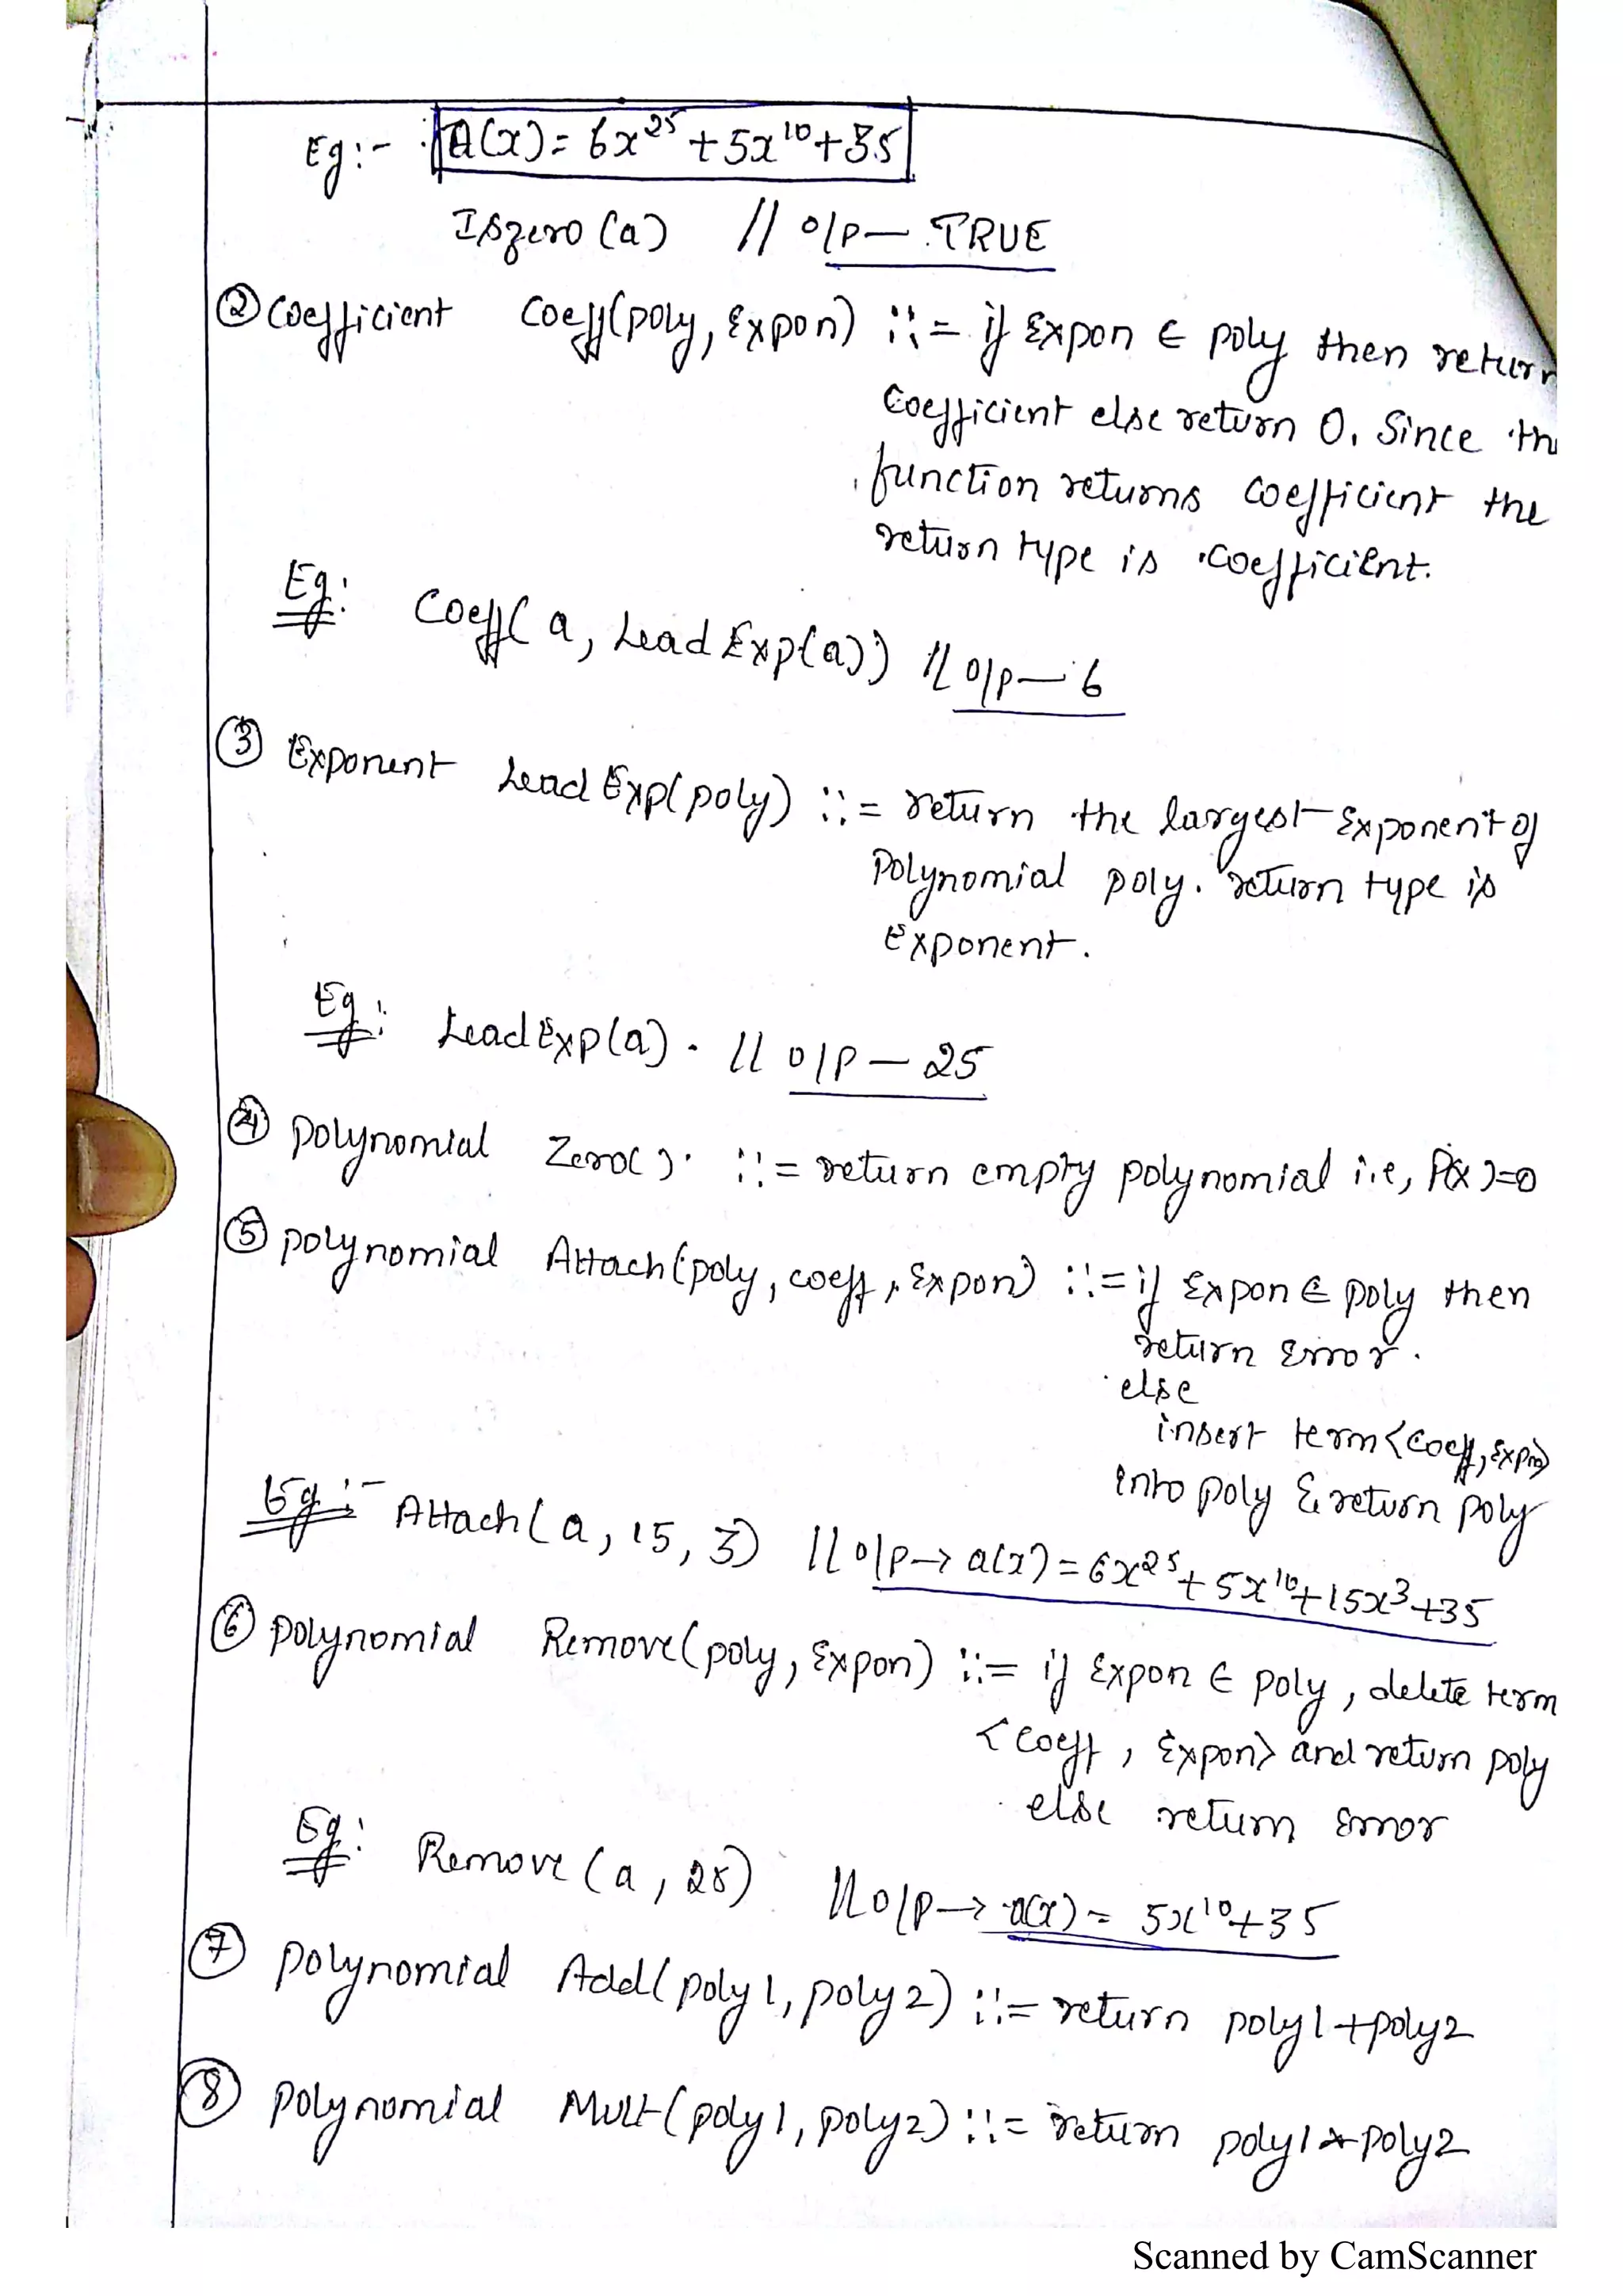 Eg:- A(x) = 6x²⁵ + 5x¹⁰ + 35
Iszero (a) // o/p — TRUE
② Coefficient Coeff(poly, Expon) ::= if Expon ∈ poly then return
Coefficient else return 0. Since th
function returns coefficient the
return type is coefficient.
Eg: Coeff( a, Lead Exp(a)) // o/p — 6
③ Exponent Lead Exp(poly) ::= return the largest Exponent of
Polynomial poly. return type is
Exponent.
Eg: Lead Exp(a). // o/p — 25
④ Polynomial Zero( ). ::= return empty polynomial i.e, P(x)=0
⑤ polynomial Attach(poly, coeff, Expon) ::= if Expon ∈ poly then
return Error.
else
insert term <Coeff, Expn>
into poly & return poly
Eg:- Attach( a, 15, 3) // o/p → a(x) = 6x²⁵ + 5x¹⁰ + 15x³ + 35
⑥ Polynomial Remove(poly, Expon) ::= if Expon ∈ poly, delete term
<Coeff, Expon> and return poly
else return Error
Eg: Remove (a, 25) // o/p → a(x) = 5x¹⁰ + 35
⑦ Polynomial Add( poly 1, poly 2) ::= return poly1 + poly2
⑧ Polynomial Mult(poly 1, poly 2) ::= return poly1 * poly2
Scanned by CamScanner